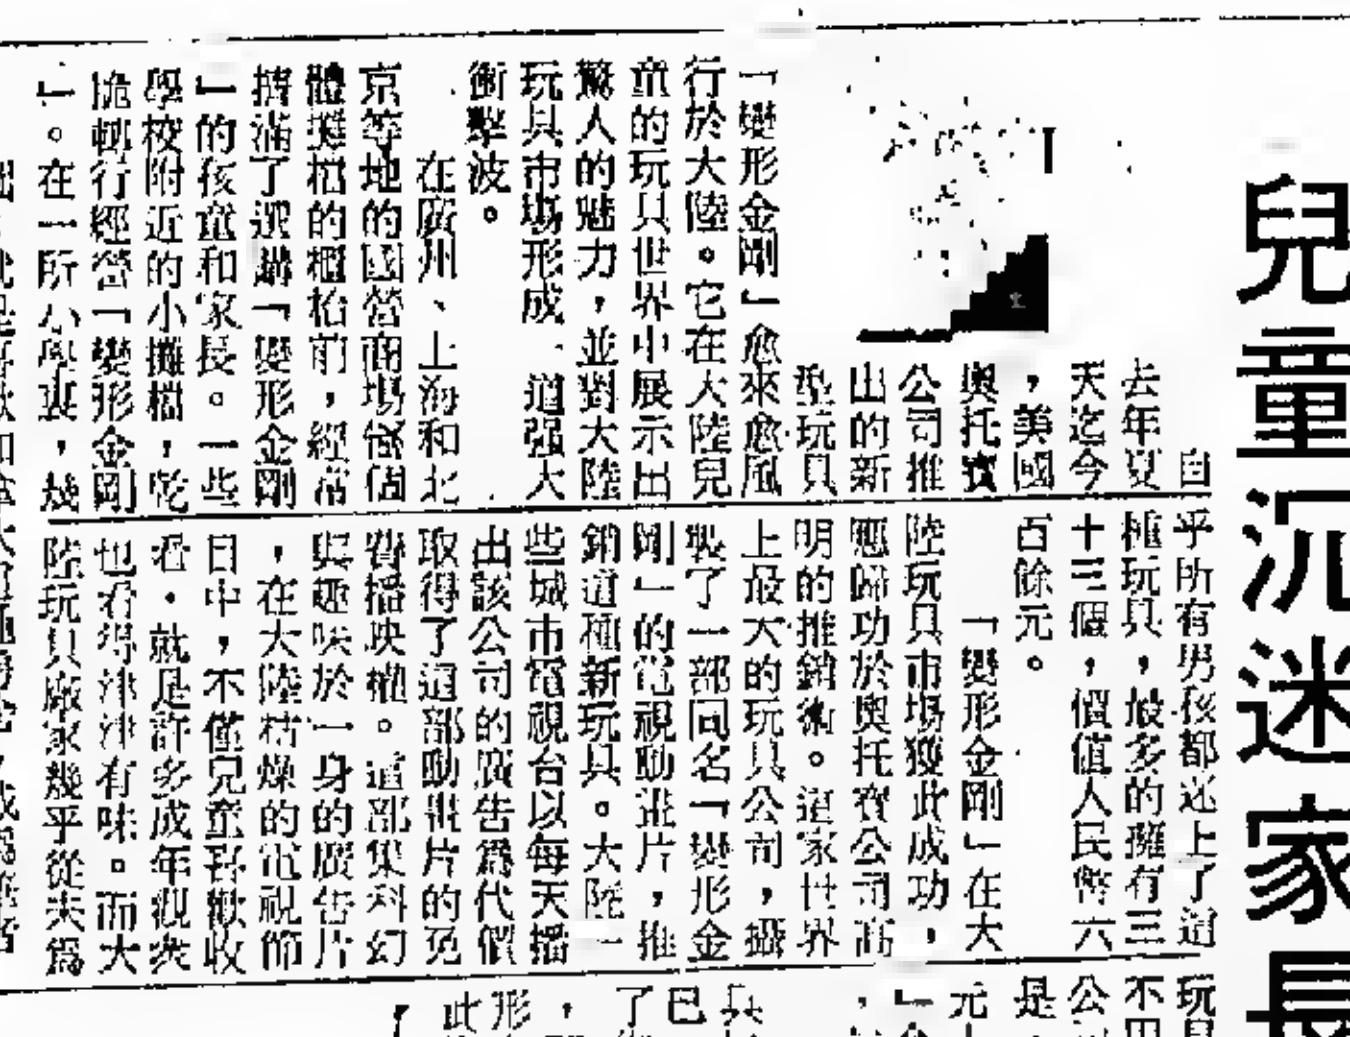 兒童沉迷家長
自
去年夏
天迄今
，美國
奧托寶
公司推
出的新
型玩具
「變形金剛」愈來愈風
行於大陸。它在大陸兒
童的玩具世界中展示出
驚人的魅力，並對大陸
玩具市場形成一道强大
衝擊波。
在廣州、上海和北
京等地的國營商場個個
體攤檔的櫃枱前，經常
擠滿了選購「變形金剛
」的孩童和家長。一些
學校附近的小攤檔，乾
脆轉行經營「變形金剛
」。在一所小學裏，幾
乎所有男孩都迷上了這
種玩具，最多的擁有三
十三個，價值人民幣六
百餘元。
「變形金剛」在大
陸玩具市場獲此成功，
應歸功於奧托寶公司高
明的推銷術。這家世界
上最大的玩具公司，攝
製了一部同名「變形金
剛」的電視動畫片，推
銷這種新玩具。大陸一
些城市電視台以每天播
出該公司的廣告爲代價
取得了這部動畫片的免
費播映權。這部集科幻
與趣味於一身的廣告片
，在大陸枯燥的電視節
目中，不僅兒童喜歡收
看，就是許多成年觀衆
也看得津津有味。而大
陸玩具廠家幾乎從未爲